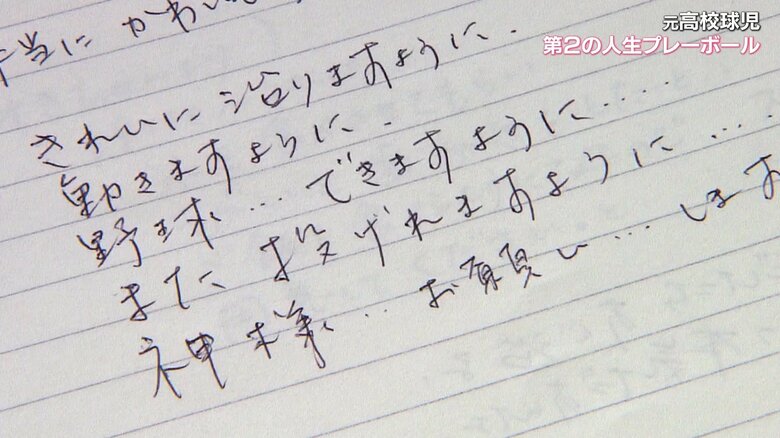 元高校球児
第2の人生プレーボール
当に かわい
きれいに 治りますように.
動きますように.
野球...できますように.....
また 投げれますように.....
神様...お願い...します